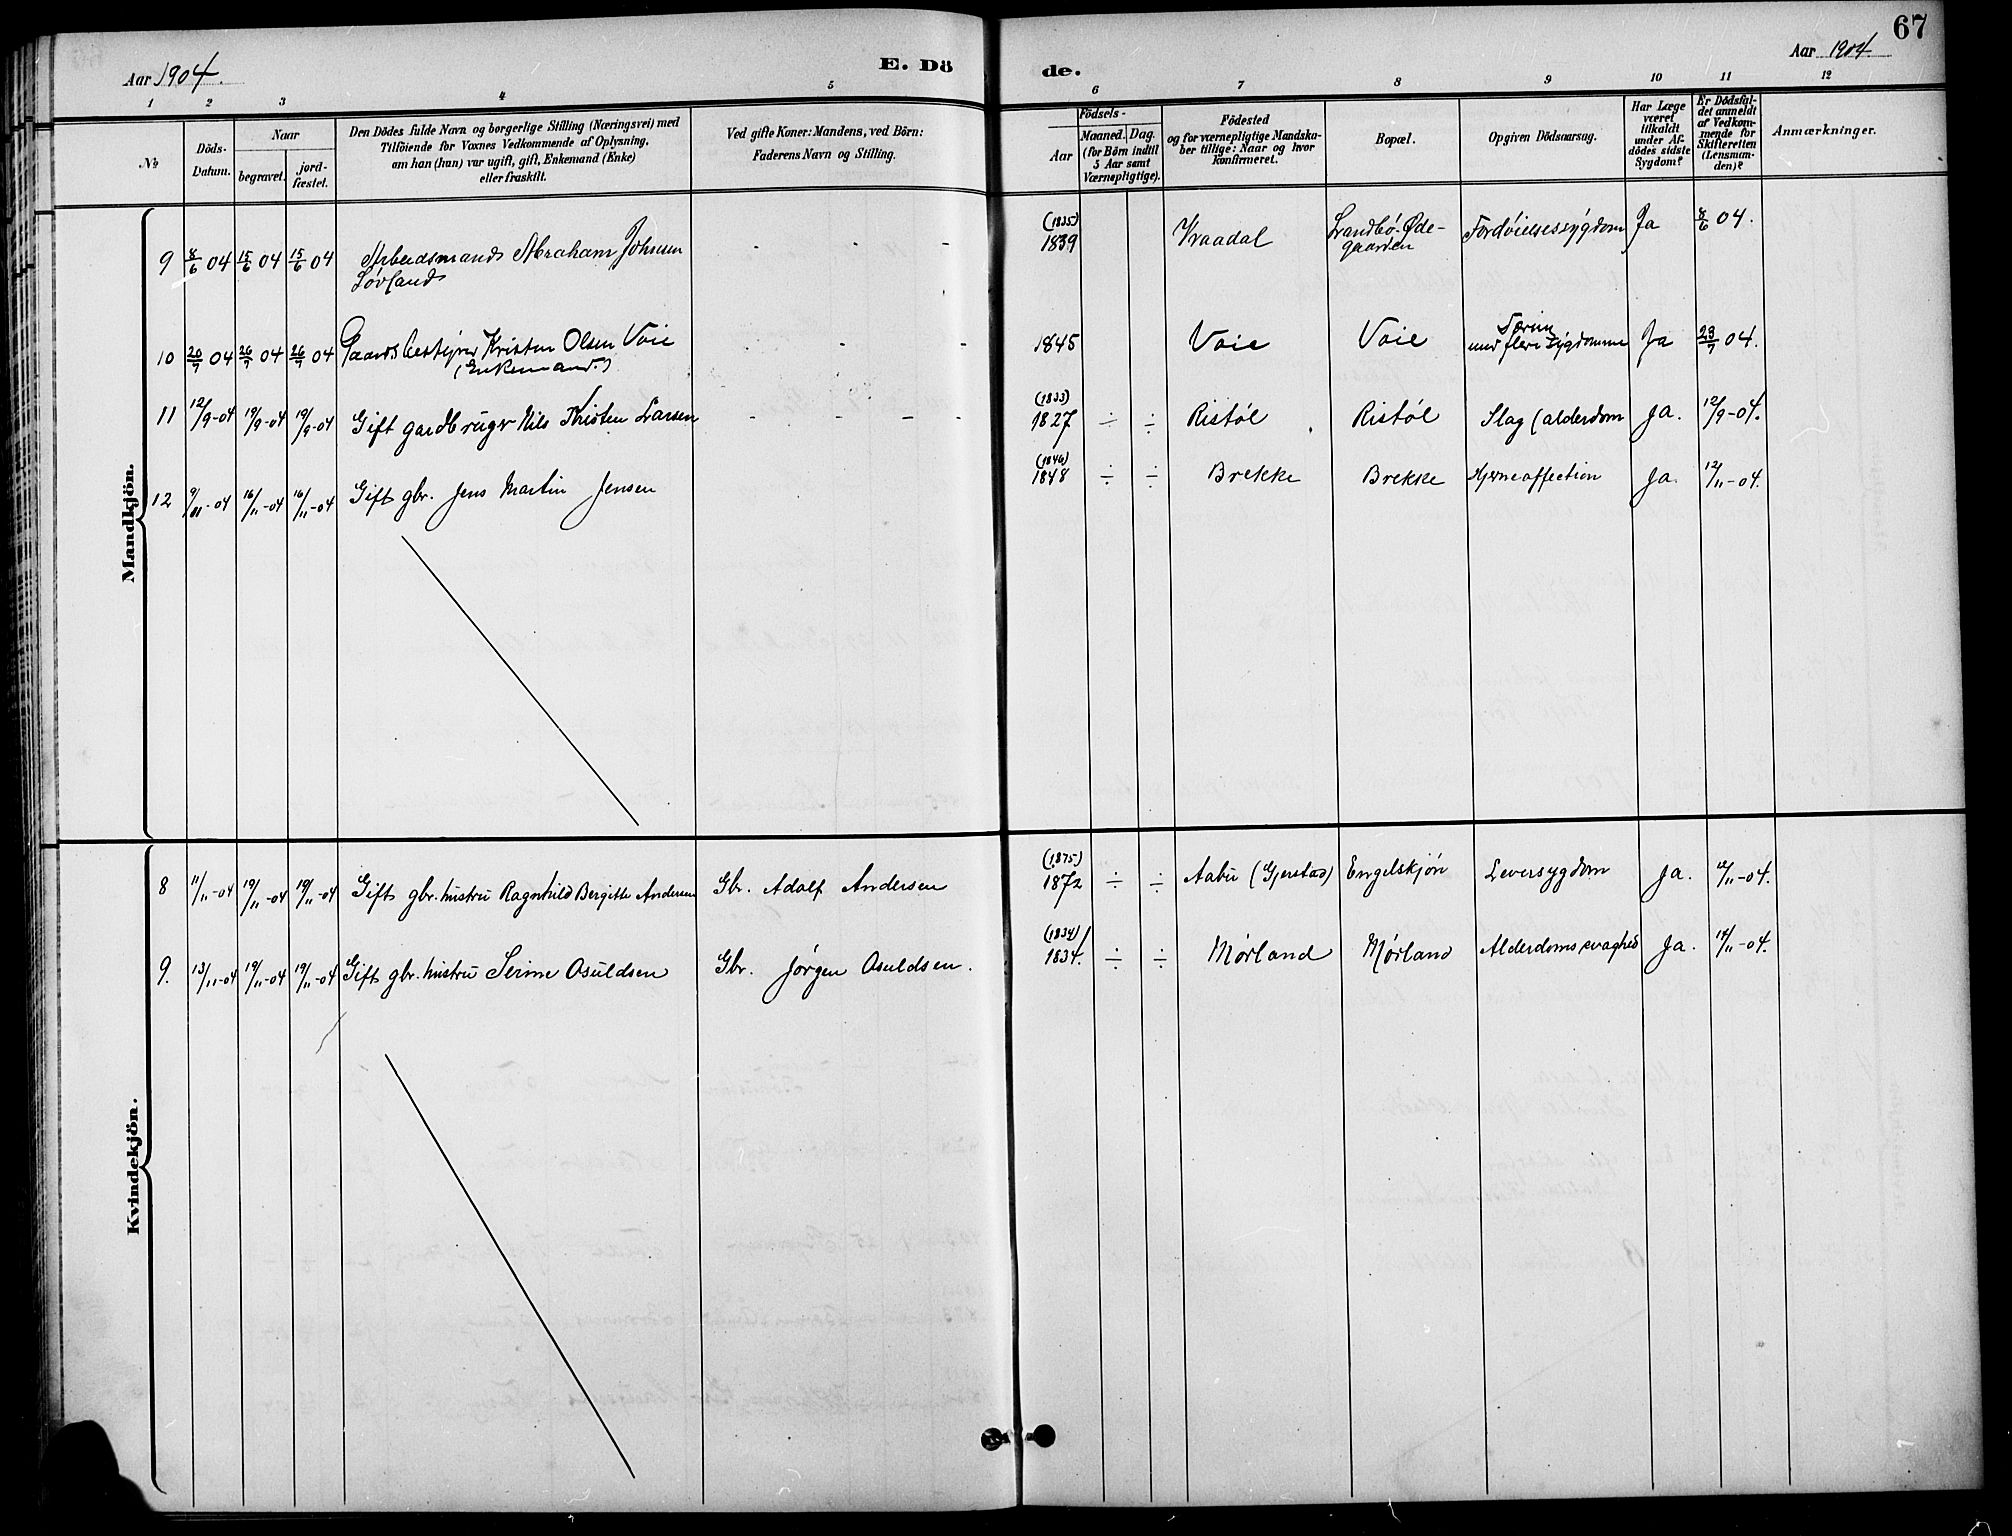 67
Aar 1904.
E. Dö
de.
Aar 1904
1 2 3 4 5 6 7 8 9 10 11 12
No
Döds-Datum.
Naar
begravet.
jord-fæstet.
Den Dödes fulde Navn og borgerlige Stilling (Næringsvei) med
Tilföiende for Voxnes Vedkommende af Oplysning,
om han (hun) var ugift, gift, Enkemand (Enke)
eller fraskilt.
Ved gifte Koner: Mandens, ved Börn:
Faderens Navn og Stilling.
Födsels-
Aar
Maaned. Dag.
(for Börn indtil
5 Aar samt
Værnepligtige).
Födested
og for værnepligtige Mandska-
ber tillige: Naar og hvor
konfirmeret.
Bopæl.
Opgiven Dödsaarsag.
Har Læge
været
tilkaldt
under Af-
dödes sidste
Sygdom?
Er Dödsfal-
det anmeldt
af Vedkom-
mende for
Skifteretten
(Lensman-
den)?
Anmærkninger.
Mandkjön.
9 8/6 04 15/6 04 15/6 04 Arbeidsmand Abraham Johnsen - - - (1835) 1839 Vraadal Landbö-Øde- Fordöielsessygdom Ja 8/6 04.
Lövland gaarden
10 20/7 04 26/7 04 26/7 04 Gaardsbestyrer Kristen Olsen Voie - - - 1845 Voie Voie med flere sygdomme Ja 23/7 04.
(Enkemand.)
11 12/9-04 19/9-04 19/9-04 Gift gardbruger Nils Kristen Larsen - - - - (1833) 1827 ÷ ÷ Ristøl Ristøl Slag (alderdom Ja. 12/9-04.
12 9/11-04 16/11-04 16/11-04 Gift gbr. Jens Martin Jensen (1846) 1848 ÷ ÷ Brekke Brekke Hjerneaffection Ja. 12/11-04.
Kvindekjön.
8 11/11-04 19/11-04 19/11-04 Gift gbr. hustru Ragnhild Bergitte Andersen Gbr. Adolf Andersen (1875) 1872 ÷ ÷ Aabu (Gjerstad) Engelskjön Leversygdom Ja. 12/11-04.
9. 13/11-04 19/11-04 19/11-04 Gift gbr. hustru Serine Osuldsen Gbr. Jørgen Osuldsen. (1834) 1834. ÷ ÷ Mørland Mørland Alderdomssvaghed Ja. 14/11-04.